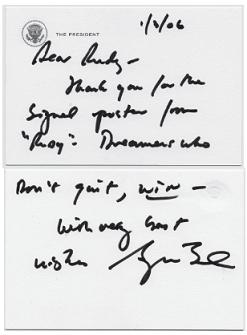 THE PRESIDENT
1/3/06
Dear Rudy -
Thank you for the
signed poster from
"Rudy". Dreamers who
Don't quit, win -
With very best
wishes